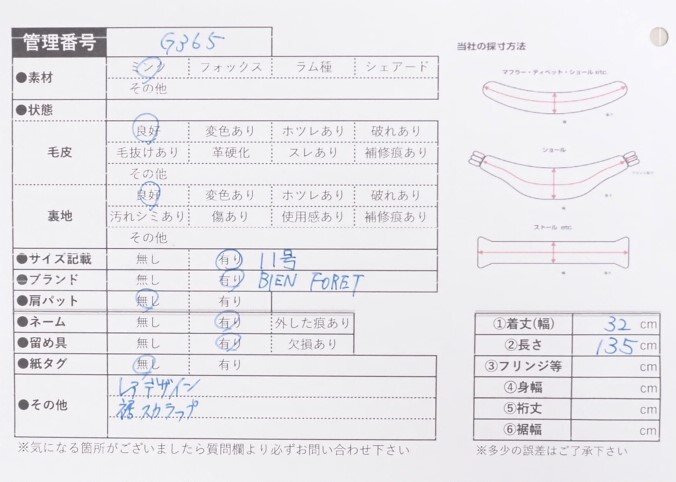 管理番号 G365
●素材 ミンク フォックス ラム種 シェアード
その他
●状態
毛皮 良好 変色あり ホツレあり 破れあり
毛抜けあり 革硬化 スレあり 補修痕あり
その他
裏地 良好 変色あり ホツレあり 破れあり
汚れシミあり 傷あり 使用感あり 補修痕あり
その他
●サイズ記載 無し 有り 11号
●ブランド 無し 有り BIEN FORET
●肩パット 無し 有り
●ネーム 無し 有り 外した痕あり
●留め具 無し 有り 欠損あり
●紙タグ 無し 有り
●その他 レアデザイン
裾スカラップ
※気になる箇所がございましたら質問欄より必ずお問い合わせ下さい
当社の採寸方法
マフラー・ティペット・ショール etc
ショール
ストール etc
①着丈(幅) 32 cm
②長さ 135 cm
③フリンジ等 cm
④身幅 cm
⑤裄丈 cm
⑥裾幅 cm
※多少の誤差はご了承下さい